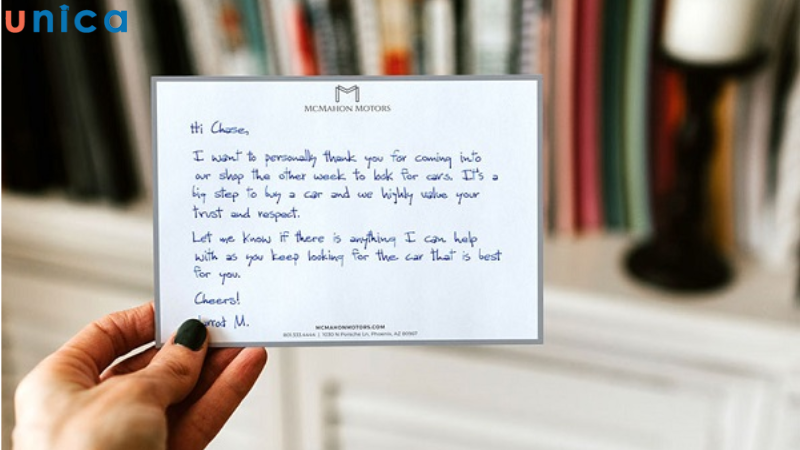 unica
MCMAHON MOTORS
Hi Chase,
I want to personally thank you for coming into
our shop the other week to look for cars. It's a
big step to buy a car and we highly value your
trust and respect.
Let me know if there is anything I can help
with as you keep looking for the car that is best
for you.
Cheers!
M.
MCMAHONMOTORS.COM
801.333.4444 | 1030 N Porsche Ln, Phoenix, AZ